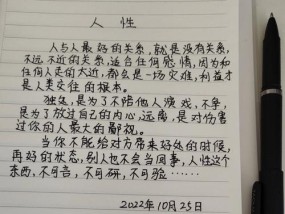 人性
人与人最好的关系,就是没有关系,
不远不近的关系,适合任何感情,因为和
任何人走的太近,都会是一场灾难,利益才
是人类交往的根本。
独处,是为了不陪他人演戏,不争,
是为了放过自己的内心,远离,是对伤害
过你的人最大的鄙视。
当你不能给对方带来好处的时候,
再好的状态,别人也不会当回事,人性这个
东西,不可言,不可研,不可验……
2022年10月25日